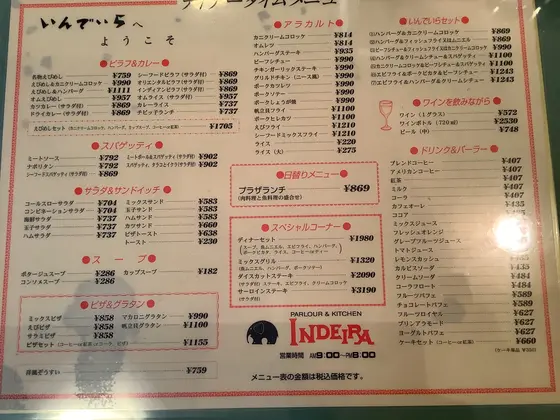 ディナータイムメニュー
いんでいらへ
ようこそ
●ピラフ&カレー●
名物えびめし ¥759
えびめし&カニクリームコロッケ ¥990
えびめし&ハンバーグ ¥1111
オムえびめし ¥957
カツカレー(サラダ付) ¥869
ドライカレー(サラダ付) ¥869
シーフードピラフ(サラダ付) ¥869
オリエンタルピラフ(サラダ付) ¥869
インディアンピラフ(サラダ付) ¥869
オムライス(サラダ付) ¥957
カレーライス ¥737
チビッテランチ ¥737
えびめしセット(カニクリームコロッケ、ハンバーグ、カップスープ、コーヒーor紅茶) ¥1705
●スパゲッティ●
ミートソース ¥792
ナポリタン ¥792
シーフードスパゲッティ ¥869
ミートボール&スパゲッティ(サラダ付) ¥902
¥902
●サラダ&サンドイッチ●
コールスローサラダ ¥704
コンビネーションサラダ ¥704
海鮮サラダ ¥737
玉子サラダ ¥737
ハムサラダ ¥737
ミックスサンド ¥583
玉子サンド ¥583
ハムサンド ¥583
カツサンド ¥660
ピザトースト ¥638
トースト ¥230
●スープ●
ポタージュスープ ¥286
コンソメスープ ¥286
カップスープ ¥182
●ピザ&グラタン●
ミックスピザ ¥858
えびピザ ¥858
サラミピザ ¥858
マカロニグラタン ¥990
帆立貝グラタン ¥1100
ピザセット ¥1155
洋風ぞうすい ¥759
●アラカルト●
カニクリームコロッケ ¥814
オムレツ ¥814
ハンバーグステーキ ¥935
ビーフシチュー ¥1100
チキンガーリックステーキ ¥1100
グリルドチキン(ニース風) ¥1100
ポークカツレツ ¥1100
ポークソテー ¥1100
ポークしょうが焼 ¥1100
帆立貝フライ ¥1100
ポークヒレカツ ¥1100
えびフライ ¥1210
シーフードミックスフライ ¥1210
ライス ¥220
ライス(大) ¥275
●日替りメニュー●
プラザランチ ¥869
(肉料理と魚料理の盛合せ)
●スペシャルコーナー●
ディナーセット ¥1980
ミックスグリル ¥1320
ダイスカットステーキ ¥2090
サーロインステーキ ¥3190
PARLOUR & KITCHEN
INDEIRA
営業時間 AM8:00〜PM8:00
メニュー表の金額は税込価格です。
●いんでいらセット●
①ハンバーグ&カニクリームコロッケ ¥869
¥869
¥1100
¥1100
¥1100
¥1243
⑦エビフライ&ハンバーグ&クリームシチュー ¥1243
●ワインを飲みながら●
ワイン(1グラス) ¥572
ワインボトル(720ml) ¥2530
ビール(中) ¥748
●ドリンク&パーラー●
ブレンドコーヒー ¥407
アメリカンコーヒー ¥407
紅茶 ¥407
ミルク ¥407
コーラ ¥407
カフェオーレ
ココア
ミックスジュース
フレッシュオレンジ
グレープフルーツジュース
トマトジュース
レモンスカッシュ
カルピスソーダ
クリームソーダ ¥484
コークフロート ¥484
フルーツパフェ ¥589
チョコレートパフェ ¥627
フルーツロイヤル ¥627
プリンアラモード ¥627
ヨーグルトパフェ ¥627
ケーキセット(コーヒーor紅茶) ¥660